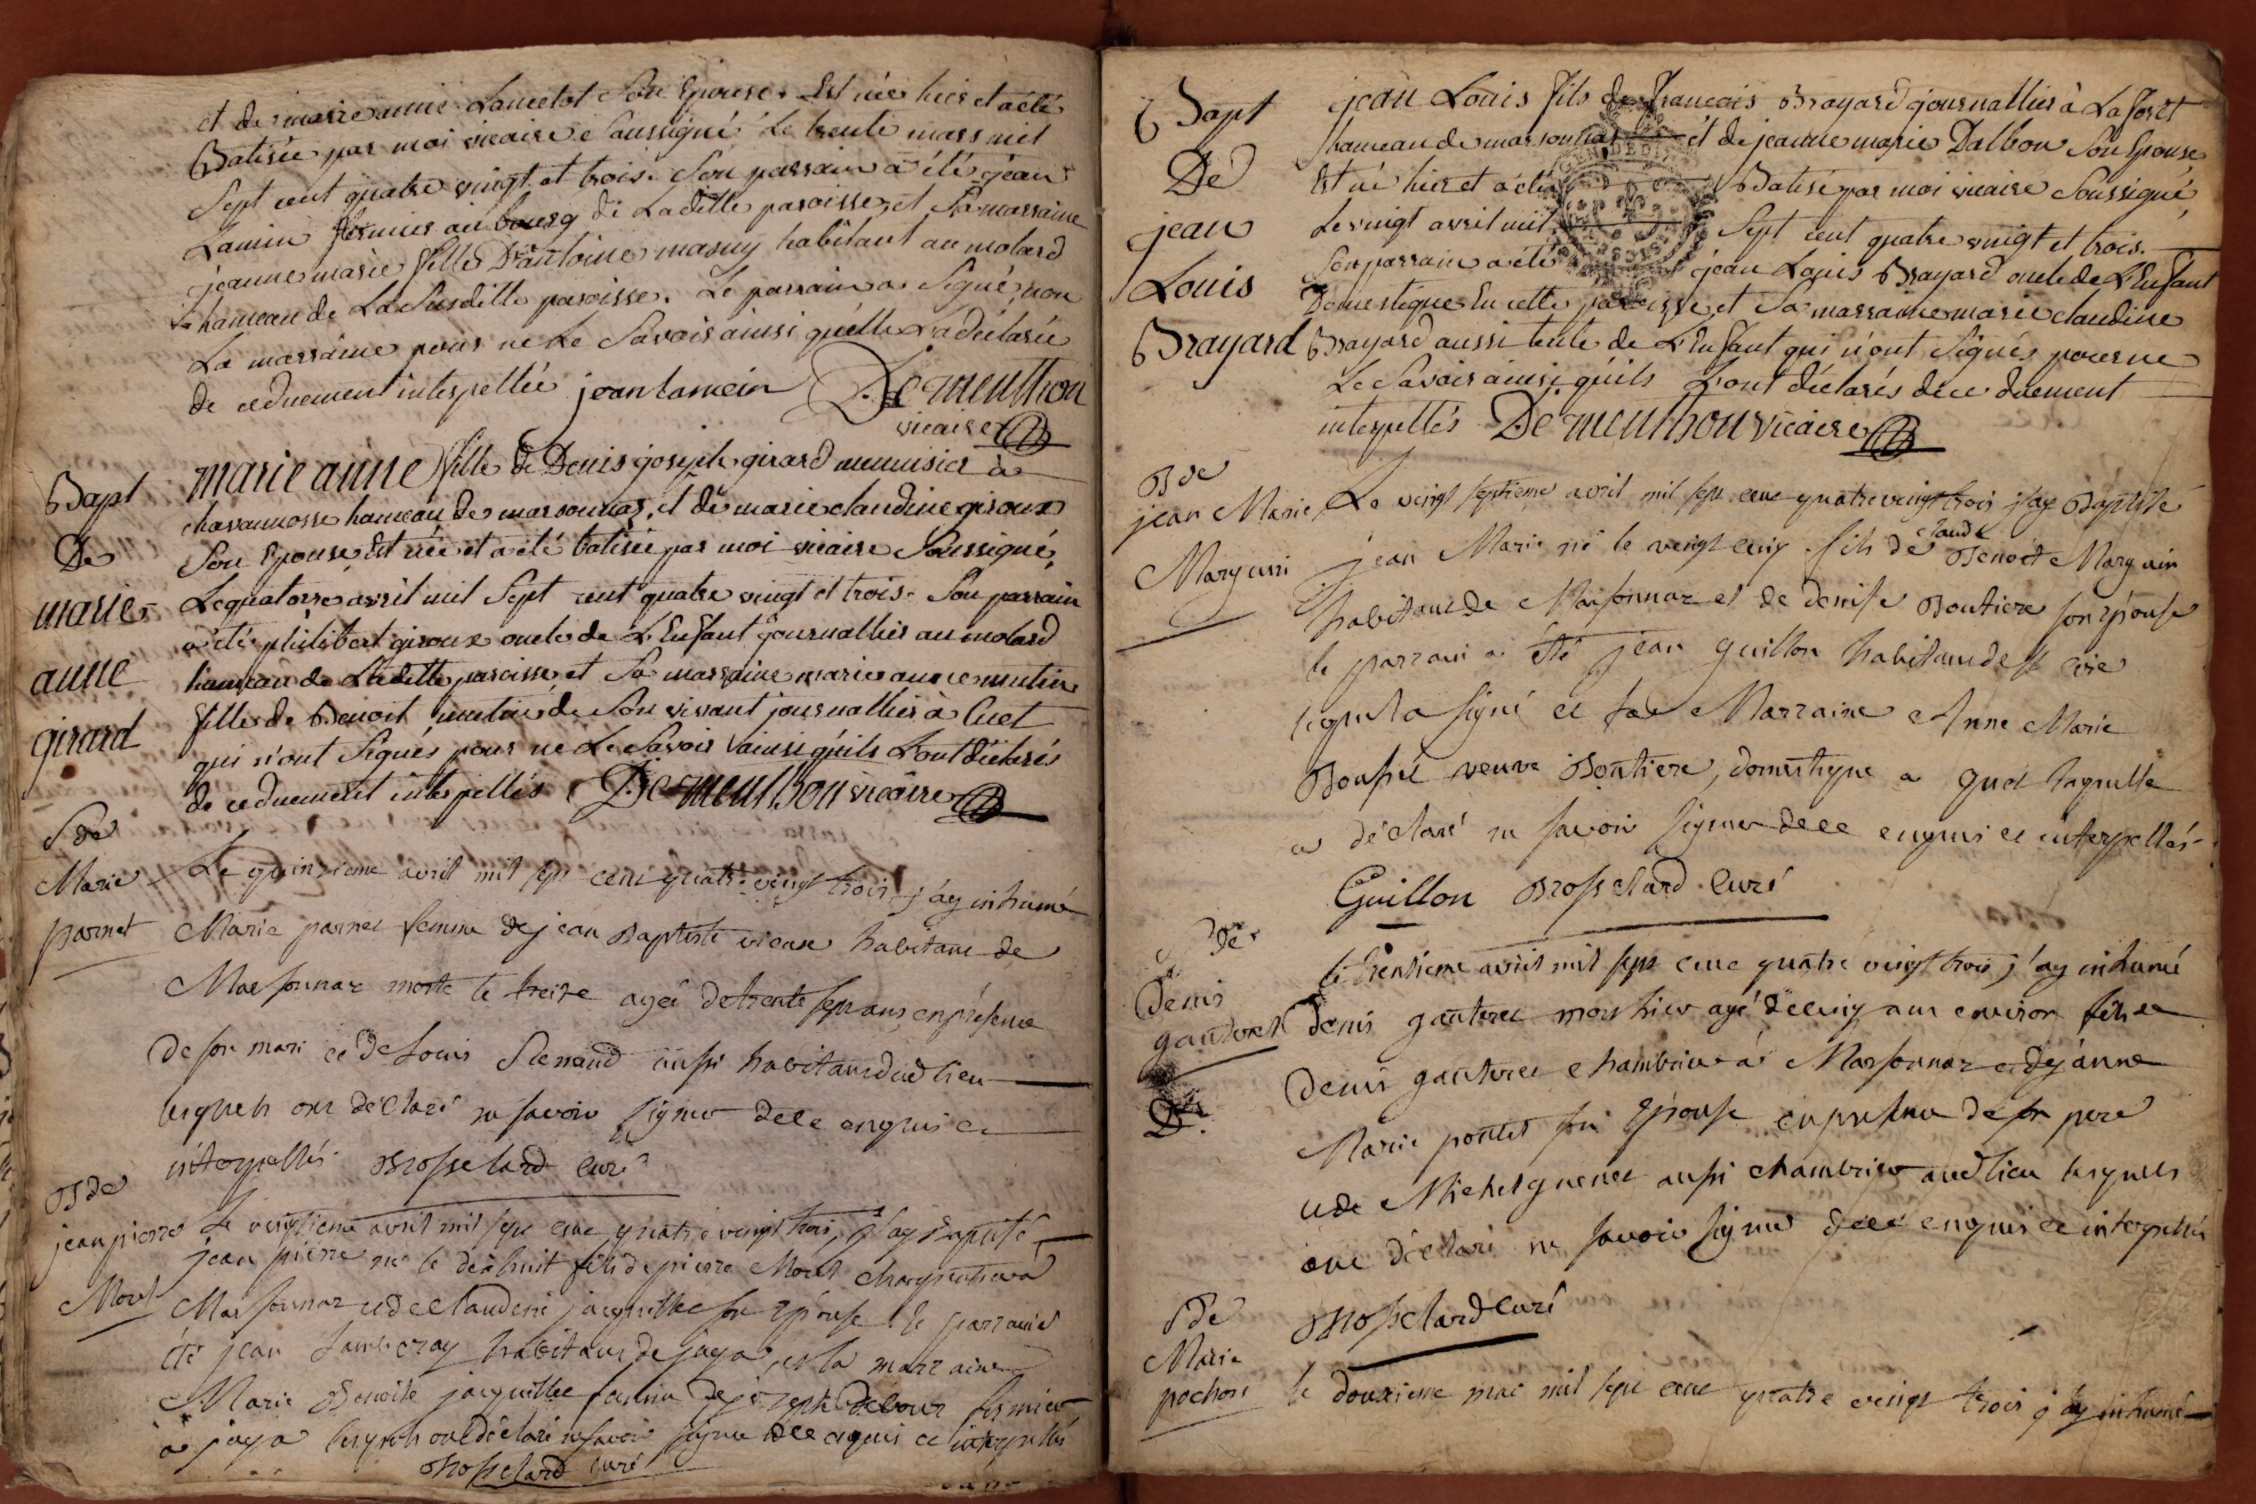 et de marie anne Lancetot Son Epouse. Est née hier et a été
Batisée par moi vicaire Soussigné Le trente mars mil
Sept cent quatre vingt et trois. Son parrain a été jean
Lamin fermier au bourg de Laditte paroisse, et Sa marraine
jeanne marie fille D'antoine habitant au molard
hameau de La Susditte paroisse. Le parrain a Signé, non
La marraine pour ne Le Savoir ainsi qu'elle L'a déclarée
de ce duement interpellée jean lamein De menthon
vicaire
Bapt
De
marie
anne
girard
marie anne fille de Denis joseph girard menuisier à
chavannosse hameau de marsonnas, et de marie claudine giroux
Son Epouse, Est née et a été batisée par moi vicaire Soussigné,
Le quatorze avril mil Sept cent quatre vingt et trois. Son parrain
a été philibert giroux oncle de L'Enfant journallier au molard
hameau de Laditte paroisse et Sa marraine marie anne
fille de Benoit de Son vivant journallier à Cuet
qui n'ont Signés pour ne Le Savoir ainsi qu'ils L'ont déclarés
de ce duement interpellés De menthon vicaire
S de
Marie
parnet
Le quinzieme avril mil sept cent quatre vingt trois j'ay inhumé
Marie parnet femme de jean Baptiste vieux habitant de
Marsonnaz morte le treize agée de trente sept ans en présence
de son mari et de Louis Renaud aussi habitant dud lieu
lesquels ont déclaré ne savoir signer de ce enquis et
interpellés. Brosselard curé
B de
jean pierre
Morel
Le vingtieme avril mil sept cent quatre vingt trois, j'ay Baptisé
jean pierre né le dixhuit fils de pierre Morel charpentier a
Marsonnaz et de claudine jacquillet son Epouse le parrain a
été jean habitant de jaya, et la marraine
Marie Benoite jacquillet femme de joseph fermier
a jaya lesquels ont déclaré ne savoir signer de ce enquis et interpellés
Brosselard curé
Bapt
De
jean
Louis
Brayard
jean Louis fils de francois Brayard journallier à La forêt
hameau de marsonnas et de jeanne marie Dalbon Son Epouse
Est né hier et a été Batisé par moi vicaire Soussigné,
Le vingt avril mil Sept cent quatre vingt et trois.
Son parrain a été jean Louis Brayard oncle de L'Enfant
Domestique En cette paroisse, et Sa marraine marie claudine
Brayard aussi tente de L'Enfant qui n'ont Signés pour ne
Le Savoir ainsi qu'ils L'ont déclarés de ce duement
interpellés De menthon vicaire
B de
jean Marie
Marguin
Le vingt septieme avril mil sept cent quatre vingt trois j'ay Baptisé
jean Marie né le vingt cinq fils de claude Benoit Marguin
habitant de Marsonnaz et de denise Boutiere son Epouse
le parrain a été jean guillon habitant de st cire
lequel a signé et sa Marraine Anne Marie
veuve Boutiere, domestique a Cuet laquelle
a déclaré ne savoir signer de ce enquis et interpellés
Guillon Brosselard curé
S de
Denis
gauteret
Dt.
le trentieme avril mil sept cent quatre vingt trois j'ay inhumé
Denis gauteret mort hier agé de cinq ans environ fils de
Denis gauteret chambrier a Marsonnaz et de jeanne
Marie pontet son Epouse en presence de son pere
et de Michel guenet aussi chambrier aud lieu lesquels
ont déclaré ne savoir signer de ce enquis et interpellés
Brosselard curé
S de
Marie
pochon
le douzieme mai mil sept cent quatre vingt trois j'ay inhumé